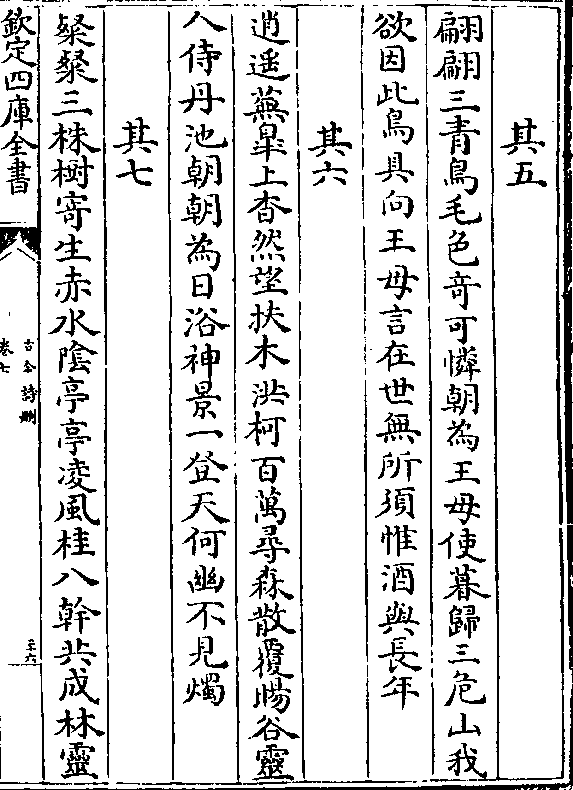 其五
翩翩三青鳥毛色竒可憐朝為王母使暮歸三危山我
欲因此鳥具向王母言在世無所須惟酒與長年
其六
逍遥蕪臯上杳然望扶木洪柯百萬尋森散覆暘谷靈
人侍丹池朝朝為日浴神景一登天何幽不見燭
其七
粲粲三株樹寄生赤水隂亭亭凌風桂八幹共成林靈
欽定四庫全書
古今詩刪
卷七
三十六